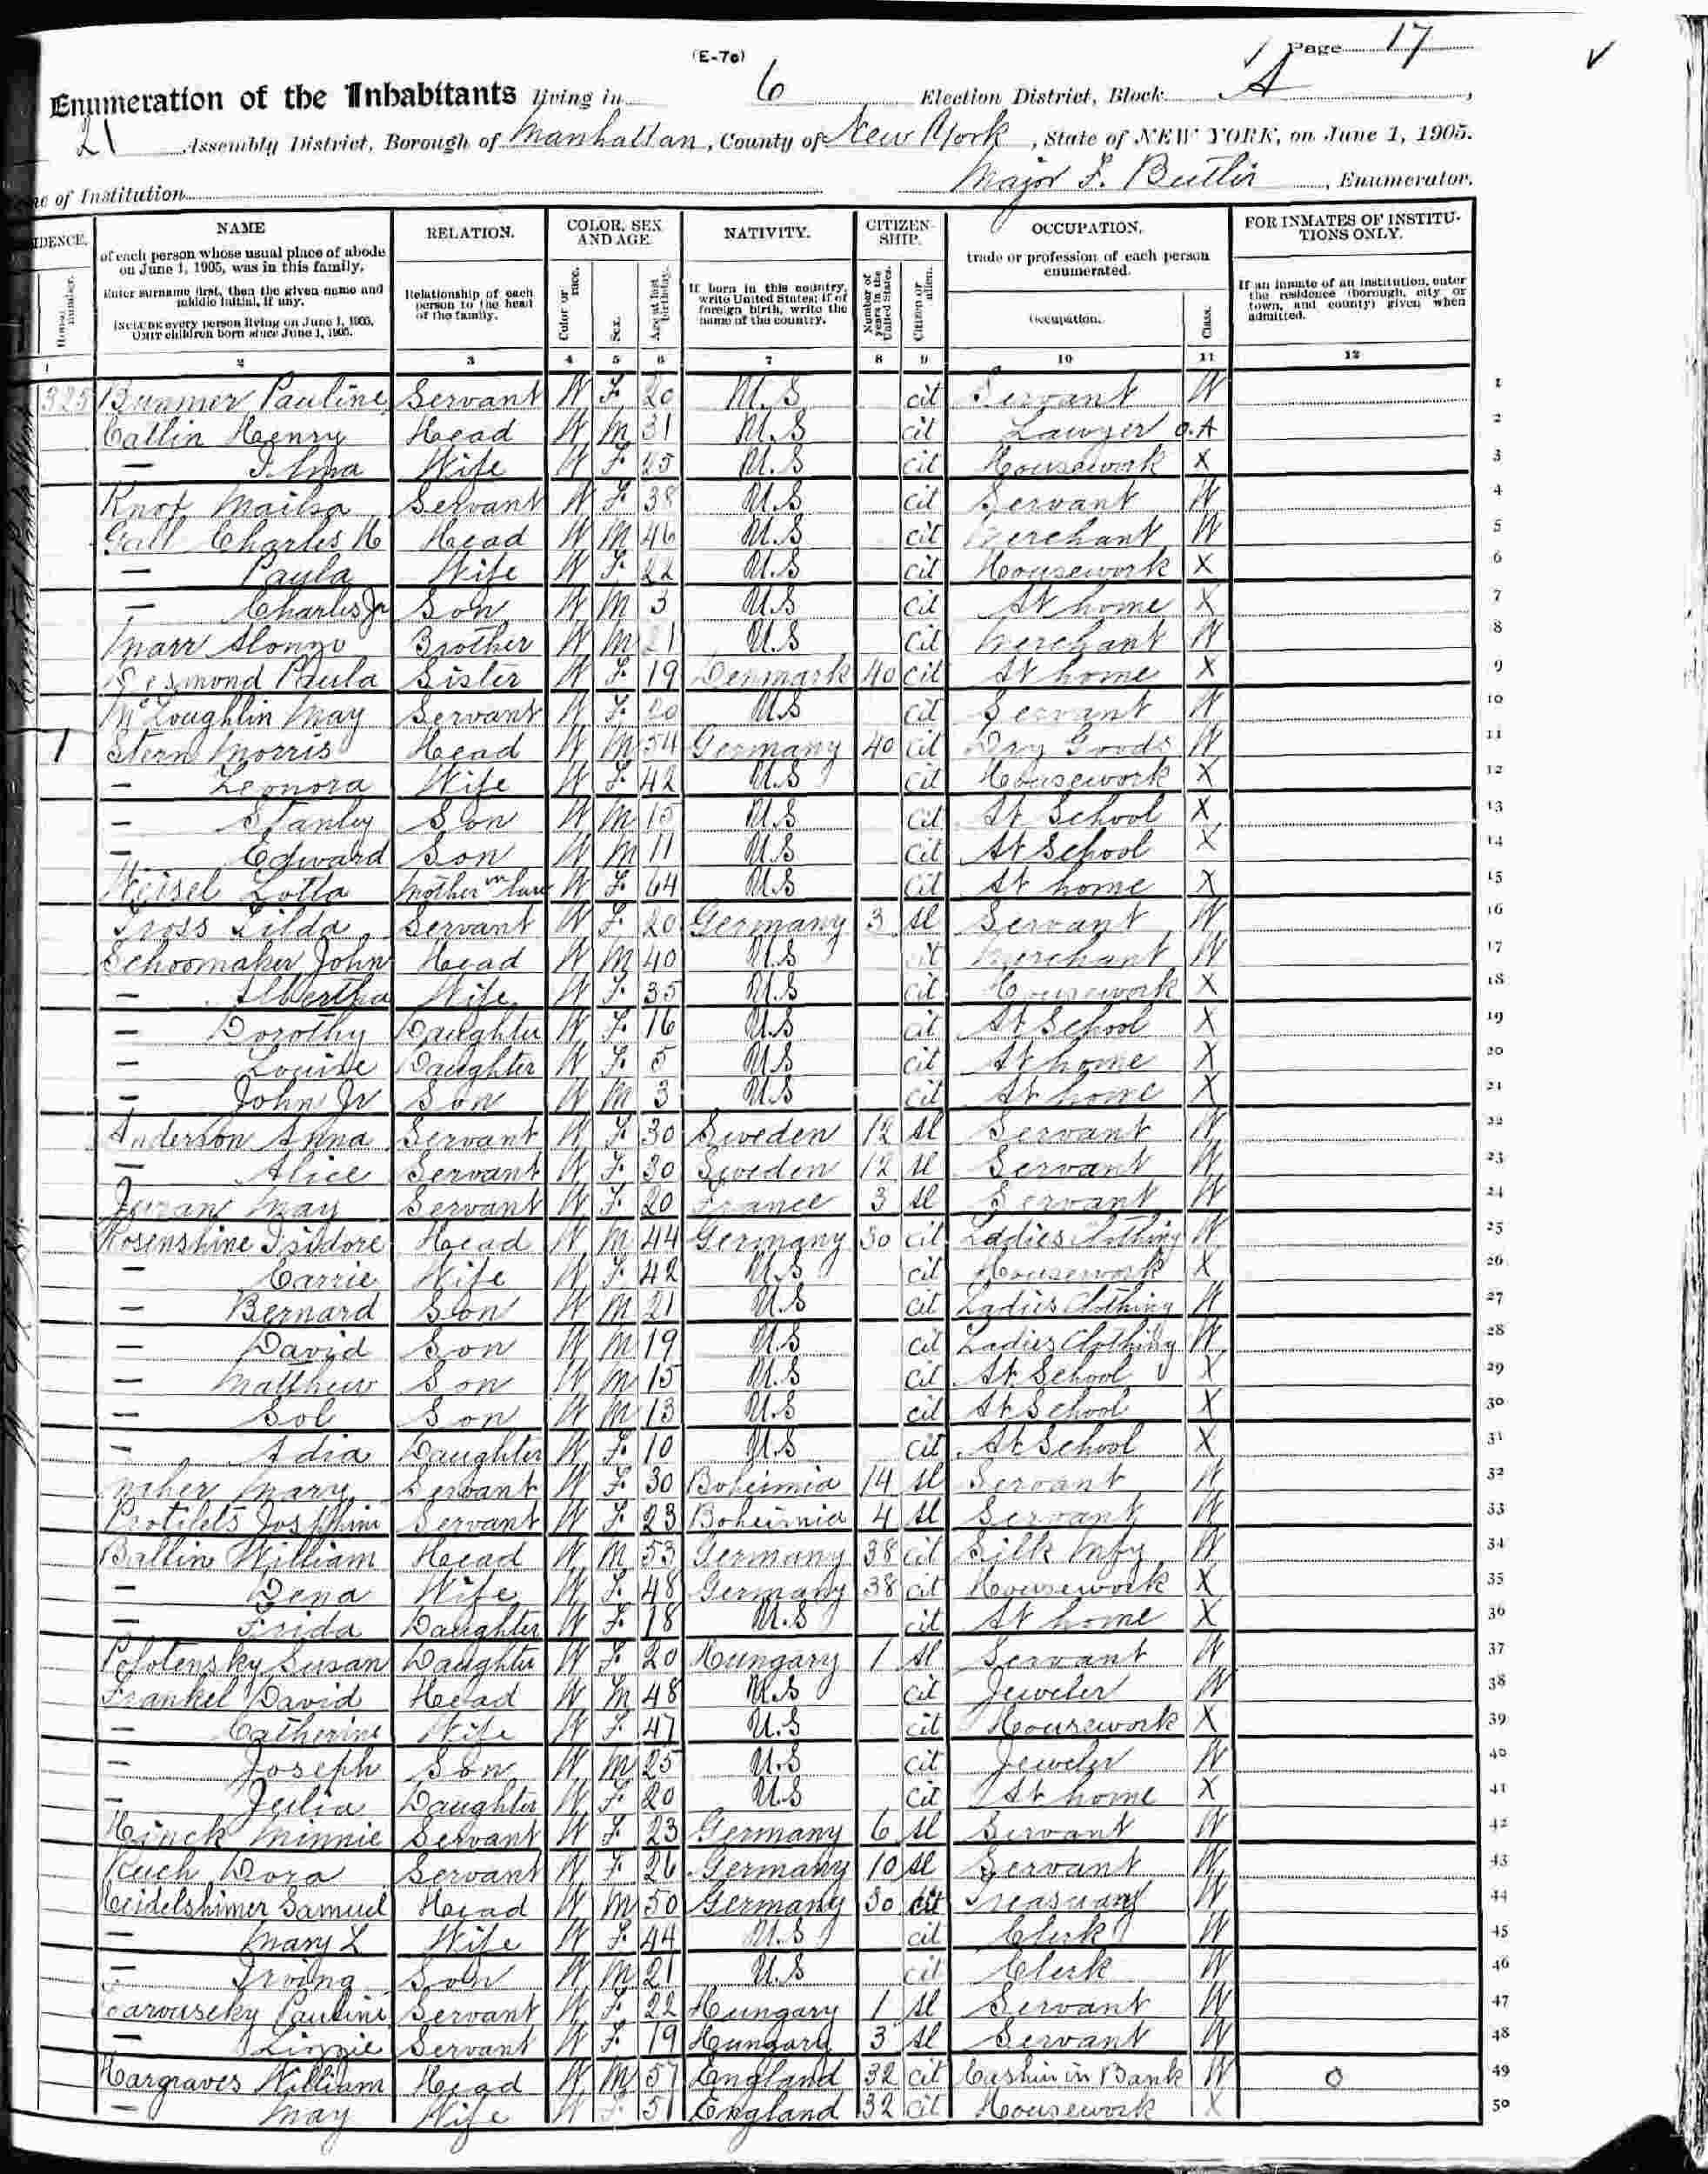 (E-7c) Page 17
Enumeration of the Inhabitants living in 6 Election District, Block A,
21 Assembly District, Borough of Manhattan, County of New York, State of NEW YORK, on June 1, 1905.
of Institution Major F. Butler, Enumerator.
IDENCE. NAME RELATION. COLOR, SEX AND AGE. NATIVITY. CITIZEN-SHIP. OCCUPATION. FOR INMATES OF INSTITU-TIONS ONLY.
of each person whose usual place of abode on June 1, 1905, was in this family.
Enter surname first, then the given name and middle initial, if any.
INCLUDE every person living on June 1, 1905. OMIT children born since June 1, 1905.
Relationship of each person to the head of the family.
Color or race. Sex. Age at last birthday.
If born in this country, write United States; if of foreign birth, write the name of the country.
Number of years in the United States. Citizen or alien.
trade or profession of each person enumerated.
Occupation. Class.
If an inmate of an institution, enter the residence (borough, city or town, and county) given when admitted.
1 2 3 4 5 6 7 8 9 10 11 12
325 Pauline Servant W F 20 U.S cit Servant W 1
Catlin Henry Head W M 31 U.S cit Lawyer O.A 2
— Wife W F 25 U.S cit Housework X 3
Knox Servant W F 38 U.S cit Servant W 4
Gall Charles Head W M 46 U.S cit Merchant W 5
— Paula Wife W F 22 U.S cit Housework X 6
— Charles Jr Son W M 3 U.S cit At home X 7
Marr Alonzo Brother W M 21 U.S cit Merchant W 8
Paula Sister W F 19 Denmark 40 cit At home X 9
McLoughlin May Servant W F 20 U.S cit Servant W 10
1 Stern Morris Head W M 54 Germany 40 cit Dry Goods W 11
— Leonora Wife W F 42 U.S cit Housework X 12
— Stanley Son W M 15 U.S cit At School X 13
— Edward Son W M 11 U.S cit At School X 14
Weisel Lotta Mother in law W F 64 U.S cit At home X 15
Tilda Servant W F 20 Germany 3 Al Servant W 16
Schoomaker John Head W M 40 U.S cit Merchant W 17
— Albertha Wife W F 35 U.S cit Housework X 18
— Dorothy Daughter W F 16 U.S cit At School X 19
— Louise Daughter W F 5 U.S cit At home X 20
— John Jr Son W M 3 U.S cit At home X 21
Anderson Anna Servant W F 30 Sweden 12 Al Servant W 22
— Alice Servant W F 30 Sweden 12 Al Servant W 23
May Servant W F 20 France 3 Al Servant W 24
Rosenshine Isidore Head W M 44 Germany 30 cit Ladies Clothing W 25
— Carrie Wife W F 42 U.S cit Housework X 26
— Bernard Son W M 21 U.S cit Ladies Clothing W 27
— David Son W M 19 U.S cit Ladies Clothing W 28
— Matthew Son W M 15 U.S cit At School X 29
— Sol Son W M 13 U.S cit At School X 30
— Adia Daughter W F 10 U.S cit At School X 31
Maher Mary Servant W F 30 Boheimia 14 Al Servant W 32
Josephine Servant W F 23 Boheimia 4 Al Servant W 33
Ballin William Head W M 53 Germany 38 cit Silk Mfy W 34
— Dena Wife W F 48 Germany 38 cit Housework X 35
— Frida Daughter W F 18 U.S cit At home X 36
Susan Daughter W F 20 Hungary 1 Al Servant W 37
Frankel David Head W M 48 U.S cit Jeweler W 38
— Catherine Wife W F 47 U.S cit Housework X 39
— Joseph Son W M 25 U.S cit Jeweler W 40
— Julia Daughter W F 20 U.S cit At home X 41
Hinck Minnie Servant W F 23 Germany 6 Al Servant W 42
Dora Servant W F 26 Germany 10 Al Servant W 43
Heidelshimer Samuel Head W M 50 Germany 30 cit W 44
— Mary L Wife W F 44 U.S cit Clerk W 45
— Irving Son W M 21 U.S cit Clerk W 46
Pauline Servant W F 22 Hungary 1 Al Servant W 47
— Lizzie Servant W F 19 Hungary 3 Al Servant W 48
Hargraves William Head W M 57 England 32 cit Cashier in Bank W O 49
— May Wife W F 51 England 32 cit Housework X 50